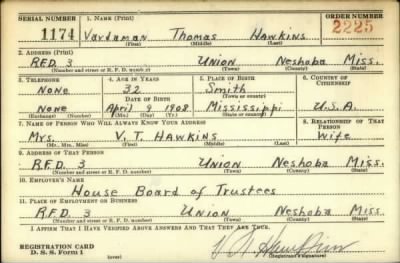 SERIAL NUMBER 1. NAME (Print) ORDER NUMBER
1174 Vardaman Thomas Hawkins 2225
(First) (Middle) (Last)
2. ADDRESS (Print)
R.F.D. 3 Union Neshoba Miss.
(Number and street or R. F. D. number) (Town) (County) (State)
3. TELEPHONE 4. AGE IN YEARS 5. PLACE OF BIRTH 6. COUNTRY OF CITIZENSHIP
None 32 Smith
DATE OF BIRTH (Town or county)
None April 9 1908 Mississippi U.S.A.
(Exchange) (Number) (Mo.) (Day) (Yr.) (State or country)
7. NAME OF PERSON WHO WILL ALWAYS KNOW YOUR ADDRESS 8. RELATIONSHIP OF THAT PERSON
Mrs. V. T. Hawkins Wife
(Mr., Mrs., Miss) (First) (Middle) (Last)
9. ADDRESS OF THAT PERSON
R.F.D. 3 Union Neshoba Miss.
(Number and street or R. F. D. number) (Town) (County) (State)
10. EMPLOYER'S NAME
House Board of Trustees
11. PLACE OF EMPLOYMENT OR BUSINESS
R.F.D. 3 Union Neshoba Miss
(Number and street or R. F. D. number) (Town) (County) (State)
I AFFIRM THAT I HAVE VERIFIED ABOVE ANSWERS AND THAT THEY ARE TRUE.
REGISTRATION CARD
D. S. S. Form 1 (over) (Registrant's signature)